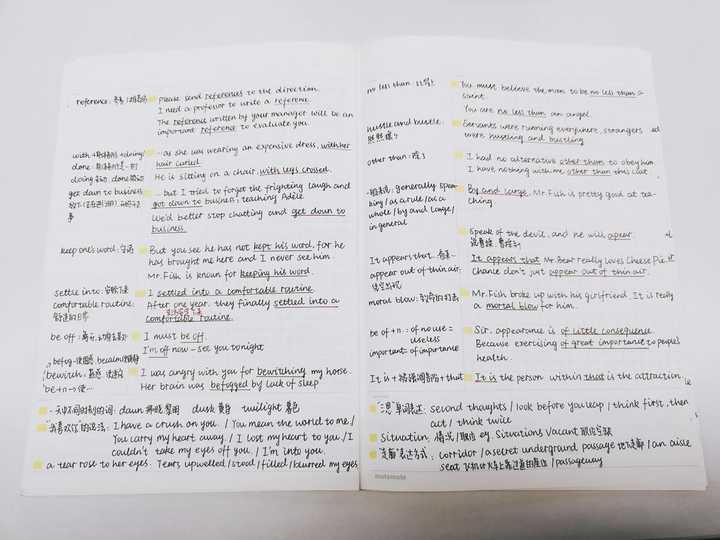 reference: 参考/推荐信
please send references to the direction.
I need a profesor to write a reference.
The reference written by your manager will be an
important reference to evaluate you.
with +
... as she was wearing an expensive dress, with her
hair curled.
He is sitting on a chair with legs crossed.
get down to business/
... but I tried to forget the frighting laugh and
got down to business, teaching Adele
We'd better stop chatting and get down to
business.
keep one's word: 守诺
But you see he has not kept his word, for he
has brought me here and I never see him.
Mr. Fish is known for keeping his word.
settle into:
comfortable routine.
舒适的日常
I settled into a comfortable routine.
After one year, they finally settled into a
comfortable routine.
be off: 离开
I must be off.
I'm off now - see you tonight
befog
bewitch:
be+n→使…
I was angry with you for bewitching my horse.
Her brain was befogged by lack of sleep
一天中不同时刻的词: dawn 拂晓 黎明 dusk 黄昏 twilight 暮色
"我喜欢你"的说法: I have a crush on you. / You mean the world to me. /
You carry my heart away. / I lost my heart to you. / I
couldn't take my eyes off you. / I'm into you.
a tear rose to her eyes. Tears upwelled/stood/filled/blurred my eyes
no less than
You must believe the man to be no less than a
saint.
You are no less than an angel.
hustle and bustle:
熙熙攘攘
Servants were running everywhere, strangers
were hustling and bustling
other than: 除了
I had no alternative other than to obey him.
I have nothing with me other than this coat
一般来说: generally spea-
king/as a rule/as a
whole/by and large/
in general
By and large, Mr. Fish is pretty good at tea-
ching.
Speak of the devil, and he will apear.
说曹操,曹操到
It appears that: 看来
appear out of thin air:
凭空出现
It appears that Mr. Bear really loves Cheese Pie.
Chance don't just appear out of thin air.
moral blow: 致命的打击
Mr. Fish broke up with his girlfriend. It is really
a mortal blow for him.
be of + n.: of no use =
useless
important = of importance
Sir, appearance is of little consequence.
Because exercising of great importance to people's
health.
It is + 被强调部分 + that
It is the person within that is the attraction.
"三思"单词表述: second thoughts / look before you leap / think first, then
act / think twice
situation: 情况/职位 eg. Situations Vacant 职位空缺
"走廊"表达方式: corridor / a secret underground passage 地下走廊 / an aisle
seat 飞机or火车上靠过道的座位 / passageway